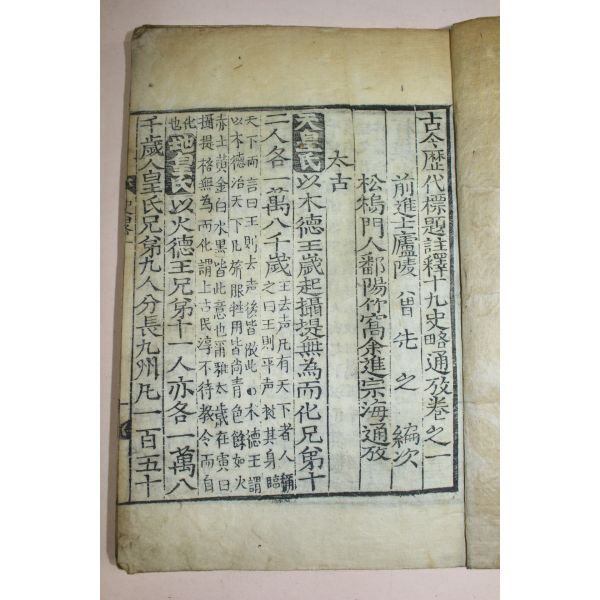 古今歴代標題註釋十九史略通攷卷之一
前進士廬陵 曾先之 編次
松塢門人鄱陽竹窩余進宗海通攷
太古
天皇氏以木德王歲起攝提無為而化兄弟十
二人各一萬八千歲王去声凡有天下者人稱
之曰王則平声 㨿其身臨
天下而言曰王則去声後皆倣此 木德王謂
以木德治天下凡旂服牲用皆尚青色餘如火
赤土黃金白水黑皆此意也爾雅太歲在寅曰
攝提格無為而化謂上古民淳不待教令而自
化也地皇氏以火德王兄弟十一人亦各一萬八
千歲人皇氏兄弟九人分長九州凡一百五十